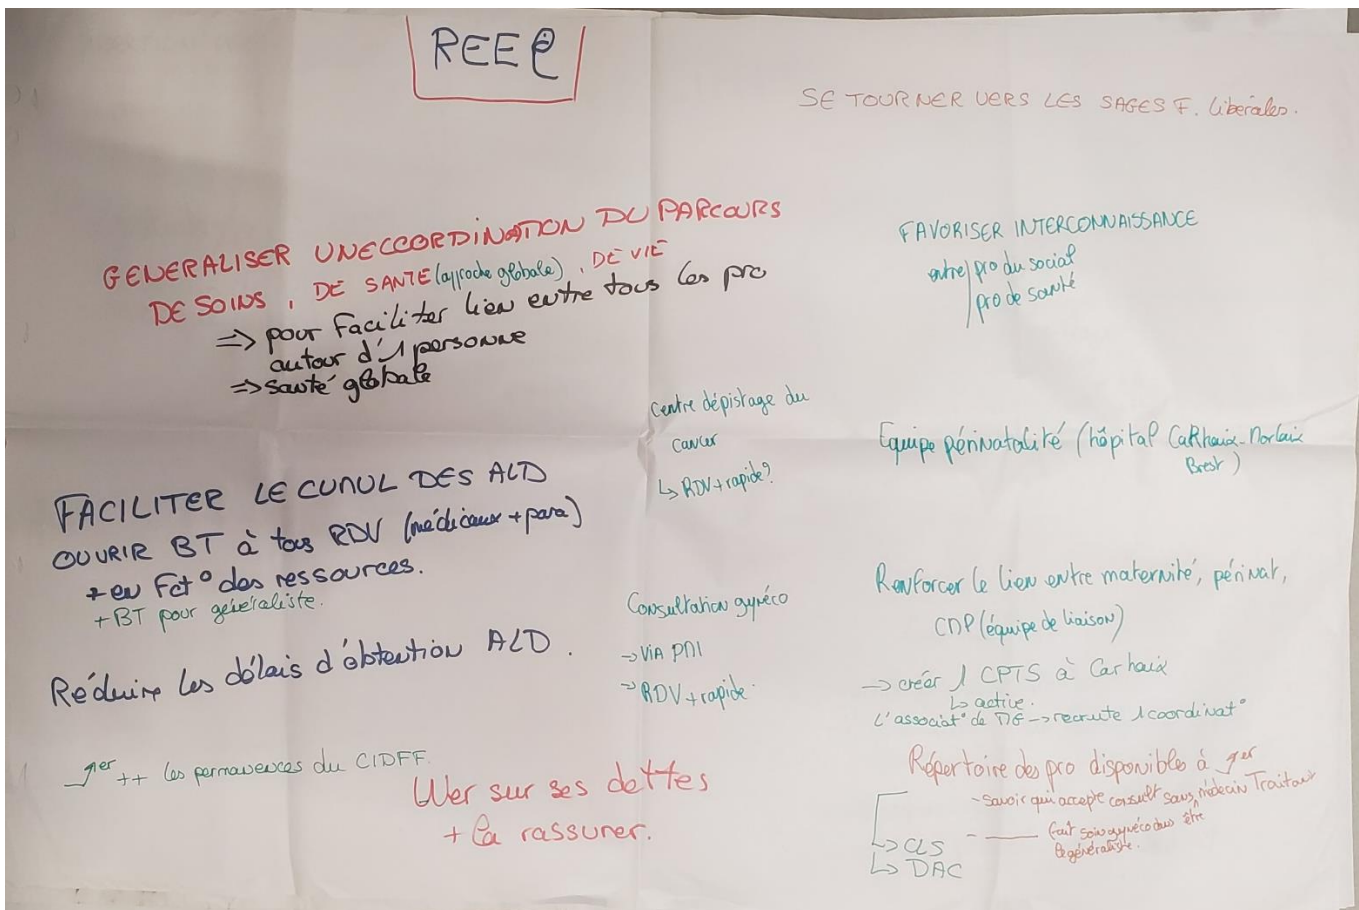 REEL
SE TOURNER VERS LES SAGES F. libérales.
GENERALISER UNE COORDINATION DU PARCOURS
DE SOINS, DE SANTE (approche globale), DE VIE
=> pour faciliter lien entre tous les pro
autour d'1 personne
=> santé globale
FAVORISER INTERCONNAISSANCE
entre / pro du social
pro de santé
Centre dépistage du
cancer
↳ RDV + rapide?
Equipe périnatalité (hôpital CaRhaix-Morlaix
Brest)
FACILITER LE CUMUL DES ALD
OUVRIR BT à tous RDV (médicaux + para)
+ en Fct° des ressources.
+ BT pour généraliste.
Réduire les délais d'obtention ALD.
Consultation gynéco
→ VIA PMI
→ RDV + rapide.
Renforcer le lien entre maternité, périnat,
CDP (équipe de liaison)
→ créer 1 CPTS à Carhaix
↳ active.
L'associat° de → recrute 1 coordinat°
++ les permanences du CIDFF.
sur ses dettes
+ la rassurer.
Répertoire des pro disponibles à
- Savoir qui accepte consult sans médecin Traitant
- fait soin gynéco dans être
le généraliste.
↳ CLS
↳ DAC